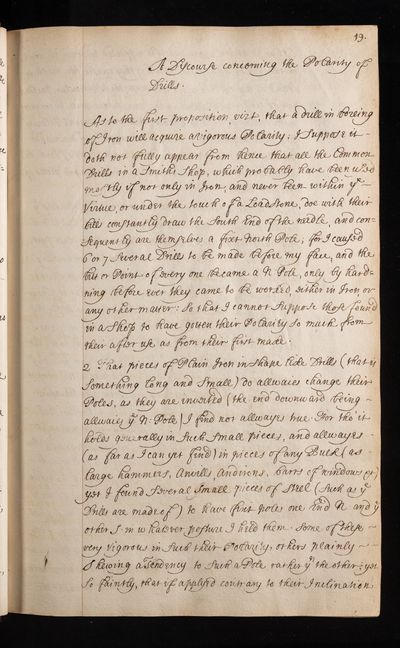 19.
A Discourse concerning the Polarity of
Drills.
As to the first proposition, vizt, that a drill in boreing
of Iron will acquire a vigorous Polarity; I suppose it
doth not fully appear from hence that all the Common
Drills in a Smiths Shop, which probably have been us'd
mostly if not only in Iron, and never been within ye
Virtue, or under the touch of a Loadstone, doe with their
bits constantly draw the South End of the needle, and con=
sequently are themselves a fixt North Pole; for I caused
6 or 7 several Drills to be made before my face, and the
bit or Point of every one became a N Pole, only by hard-
ning before ever they came to be worked, either in Iron or
any other matter: So that I cannot suppose those found
in a Shop to have gotten their Polarity so much from
their after use as from their first make.
2 That pieces of Plain Iron in shape like Drills (that is
something Long and Small) do allwaies change their
Poles, as they are inverted (the end downward being
allwaies ye N: Pole) I find not allwayes true. For tho' it
holds generally in such small pieces, and allwayes
(as far as I can yet find) in pieces of any Bulk (as
large hammers, Anvills, Andirons, barrs of windows &c)
yet I found several small pieces of Steel (such as ye
Drills are made of) to have fixt poles one End N. and ye
other S. in whatever posture I held them. some of these
very vigorous in such their Polarity, others plainly
shewing a Tendency to such a Pole rather yn the other: yet
so faintly, that if applyed contrary to their Inclination